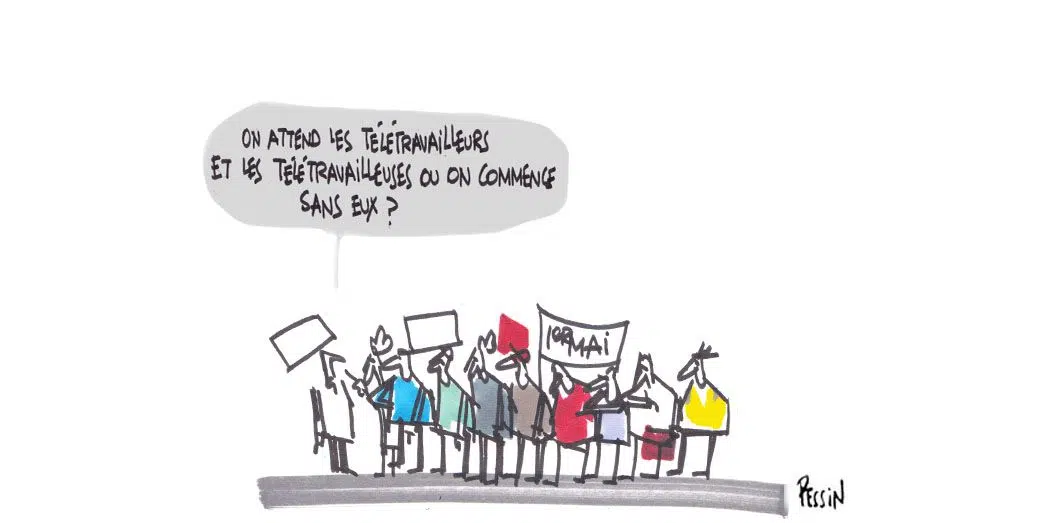 ON ATTEND LES TÉLÉTRAVAILLEURS
ET LES TÉLÉTRAVAILLEUSES OU ON COMMENCE
SANS EUX ?
1ER MAI
PESSIN